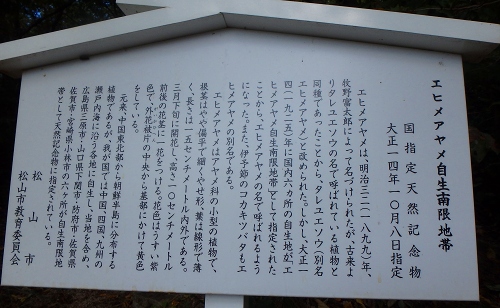 エヒメアヤメ自生南限地帯
国指定天然記念物
大正一四年一〇月八日指定
エヒメアヤメは、明治三二(一八九九)年、
牧野富太郎によって名づけられたが、古来よ
りタレユエソウの名で呼ばれている植物と
同種であったことから、タレユエソウ(別名
エヒメアヤメ)と改められた。しかし、大正一
四(一九二五)年に国内六か所の自生地が、エ
ヒメアヤメ自生南限地帯として指定された
ことから、エヒメアヤメの名で呼ばれるよう
になった。また、伊予節のコカキツバタもエ
ヒメアヤメの別名である。
エヒメアヤメはアヤメ科の小型の植物で、
根茎はやや偏平で細くやせ形、葉は線形で薄
く、長さは一五センチメートル内外である。
三月下旬に開花し、高さ一〇センチメートル
前後の花茎に一花をつける。花色はうすい紫
色で、外花被片の中央から基部にかけて黄色
をしている。
元来、中国東北部から朝鮮半島に分布する
植物であるが、我が国では中国・四国・九州の
瀬戸内海に沿う各地に自生し、当地を含め、
広島県三原市・山口県下関市・防府市・佐賀県
佐賀市・宮崎県小林市の六ヶ所が自生南限地
帯として天然記念物に指定されている。
松山市
松山市教育委員会